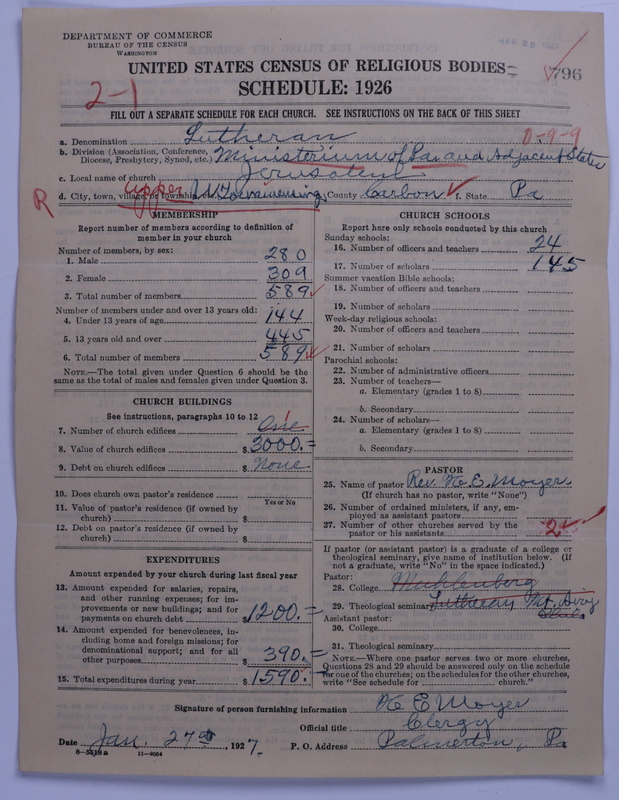 DEPARTMENT OF COMMERCE
BUREAU OF THE CENSUS
WASHINGTON
UNITED STATES CENSUS OF RELIGIOUS BODIES
796
SCHEDULE: 1926
2-1
FILL OUT A SEPARATE SCHEDULE FOR EACH CHURCH. SEE INSTRUCTIONS ON THE BACK OF THIS SHEET
a. Denomination Lutheran 0-9-9
b. Division (Association, Conference, Diocese, Presbytery, Synod, etc.) Ministerium of Pa. and Adjacent States
c. Local name of church Jerusalem
R d. City, town, village or township Upper Towamensing County Carbon f. State Pa
MEMBERSHIP
Report number of members according to definition of
member in your church
Number of members, by sex:
1. Male 280
2. Female 309
3. Total number of members 589
Number of members under and over 13 years old:
4. Under 13 years of age 144
5. 13 years old and over 445
6. Total number of members 589
NOTE.—The total given under Question 6 should be the
same as the total of males and females given under Question 3.
CHURCH BUILDINGS
See instructions, paragraphs 10 to 12
7. Number of church edifices One
8. Value of church edifices $ 3000.
9. Debt on church edifices $ None
10. Does church own pastor's residence
Yes or No
11. Value of pastor's residence (if owned by
church) $
12. Debt on pastor's residence (if owned by
church) $
EXPENDITURES
Amount expended by your church during last fiscal year
13. Amount expended for salaries, repairs,
and other running expenses; for im-
provements or new buildings; and for
payments on church debt $ 1200.
14. Amount expended for benevolences, in-
cluding home and foreign missions; for
denominational support; and for all
other purposes $ 390.
15. Total expenditures during year $ 1590.
CHURCH SCHOOLS
Report here only schools conducted by this church
Sunday schools:
16. Number of officers and teachers 24
17. Number of scholars 145
Summer vacation Bible schools:
18. Number of officers and teachers
19. Number of scholars
Week-day religious schools:
20. Number of officers and teachers
21. Number of scholars
Parochial schools:
22. Number of administrative officers
23. Number of teachers—
a. Elementary (grades 1 to 8)
b. Secondary
24. Number of scholars—
a. Elementary (grades 1 to 8)
b. Secondary
PASTOR
25. Name of pastor Rev. E. Moyer
(If church has no pastor, write "None")
26. Number of ordained ministers, if any, em-
ployed as assistant pastors
27. Number of other churches served by the
pastor or his assistants 2
If pastor (or assistant pastor) is a graduate of a college or
theological seminary, give name of institution below. (If
not a graduate, write "No" in the space indicated.)
Pastor:
28. College Muhlenberg
29. Theological seminary Mt. Airy
Assistant pastor:
30. College
31. Theological seminary
NOTE.—Where one pastor serves two or more churches,
Questions 28 and 29 should be answered only on the schedule
for one of the churches; on the schedules for the other churches,
write "See schedule for church."
Signature of person furnishing information E Moyer
Official title Clergy
Date Jan. 27th, 1927. P. O. Address Palmerton, Pa
8-5518a 11-9054